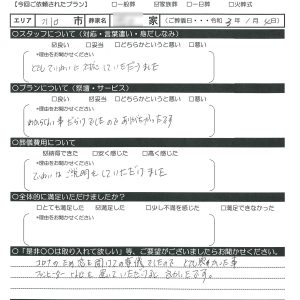 【今回ご依頼されたプラン】 □一般葬 ☑家族葬 □一日葬 □火葬式
エリア 川口市 葬家名 家 （ご葬儀日・令和3年 月 日）
○スタッフについて（対応・言葉遣い・身だしなみ）
☑良い □妥当 □どちらかというと悪い □悪い
*理由をお聞かせください
とてもていねいに対応していただきました
○プランについて（祭壇・サービス）
□良い ☑妥当 □どちらかというと悪い □悪い
*理由をお聞かせください
わからない事だらけでしたのでありがたかったです
○葬儀費用について
☑納得できた □安く感じた □高く感じた
*理由をお聞かせください
ていねいにご説明をしていただけました
○全体的に満足いただけましたか？
□とても満足した ☑満足した □少し不満を感じた □満足できなかった
*理由をお聞かせください
○「是非○○は取り入れて欲しい」等、ご要望がございましたらお聞かせください。
コロナのため窓を開けての葬儀でしたので とても寒かった事